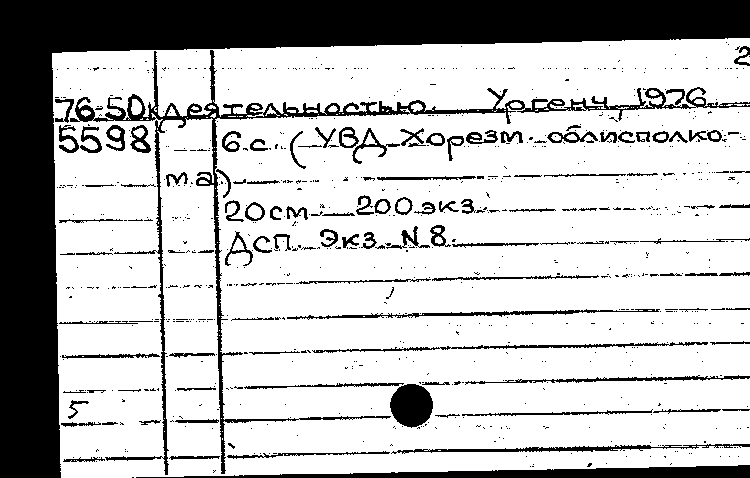 2
76-50к деятельностью. Ургенч, 1976.
5598 6 с. (УВД Хорезм. облисполко-
ма).
20см. 200 экз.
Дсп. Экз. N 8.
5